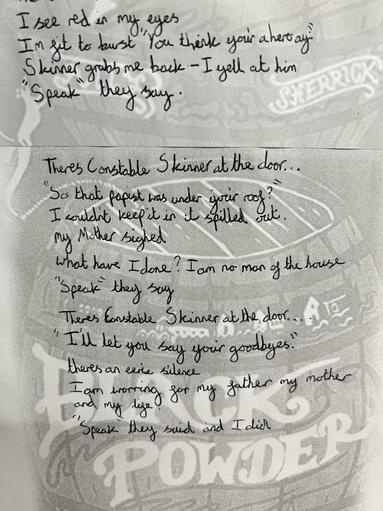 I see red in my eyes
I'm fit to burst "You think your a hero ay"
Skinner grabs me back - I yell at him
"Speak" they say.
SHERRICK
Theres Constable Skinner at the door...
"So that papist was under your roof?"
I couldnt keep it in it spilled out.
my Mother sighed
What have I done? I am no man of the house
"Speak" they say
Theres Constable Skinner at the door....
"I'll let you say your goodbyes."
theres an eerie silence
I am worring for my father my mother
and my life!
"Speak" they said and I did
BLACK
POWDER